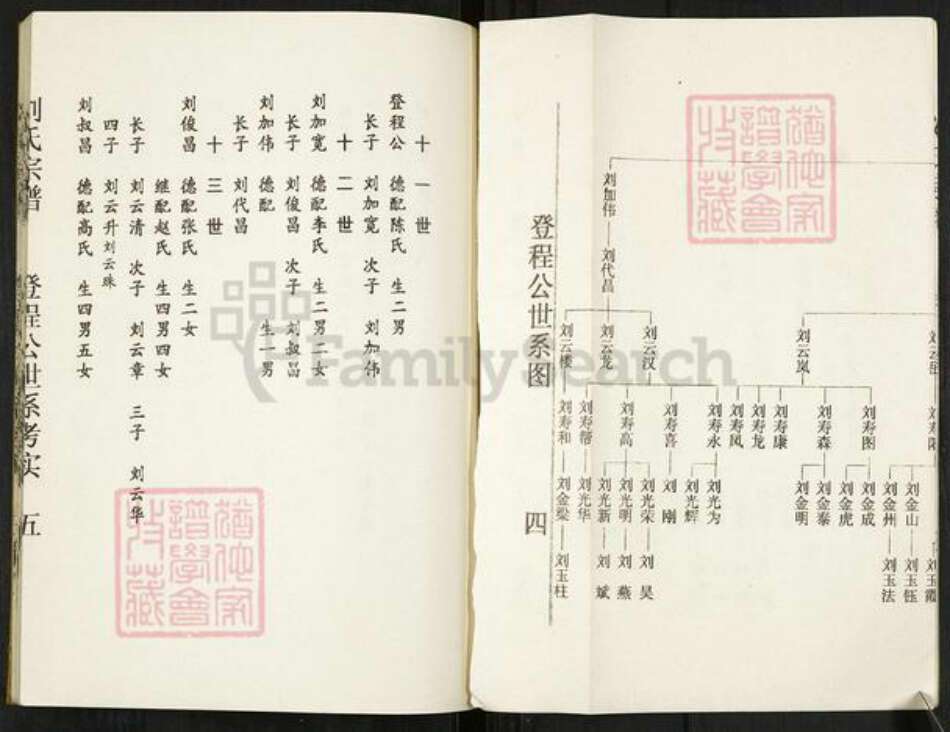 刘加伟
刘代昌
刘云岚
刘云汉
刘云龙
刘云楼
刘寿图
刘寿森
刘寿康
刘寿龙
刘寿凤
刘寿永
刘寿喜
刘寿高
刘寿帮
刘寿和
刘金山
刘金州
刘金成
刘金虎
刘金泰
刘金明
刘光为
刘光辉
刘刚
刘光荣
刘光明
刘光新
刘光华
刘金梁
刘玉霞
刘玉钰
刘玉法
刘昊
刘燕
刘斌
刘玉柱
登程公世系图 四
十一世
登程公 德配陈氏 生二男
长子 刘加宽 次子 刘加伟
十二世
刘加宽 德配李氏 生二男二女
长子 刘俊昌 次子 刘叔昌
刘加伟 德配 生一男
长子 刘代昌
十三世
刘俊昌 德配张氏 生二女
继配赵氏 生四男四女
长子 刘云清 次子 刘云章 三子 刘云华
四子 刘云升 刘云珠
刘叔昌 德配高氏 生四男五女
刘氏宗谱 登程公世系考实 五
FamilySearch
猶他家譜學會收藏
猶他家譜學會收藏